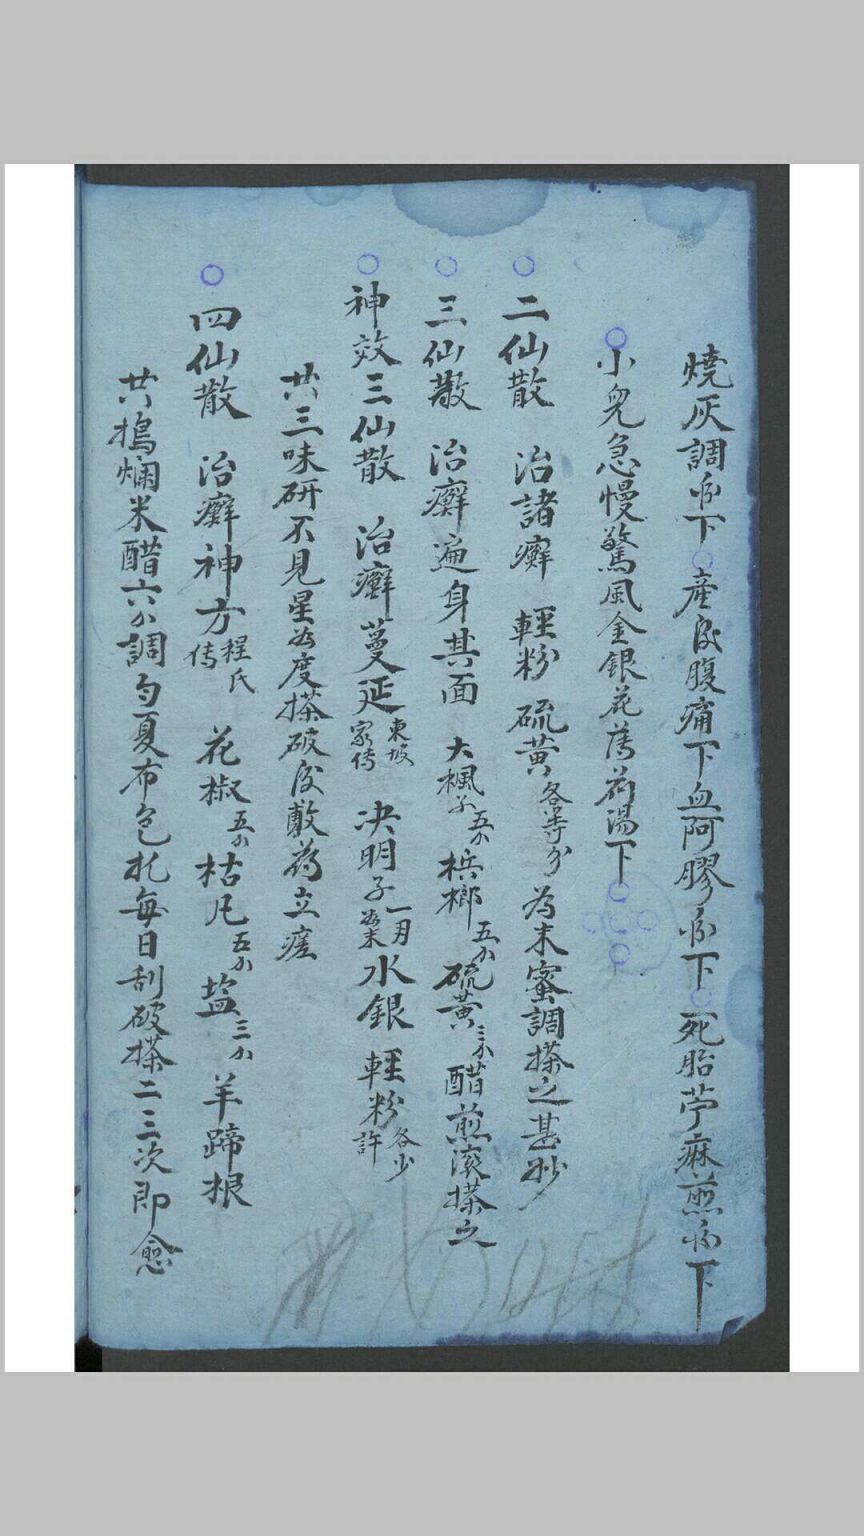 燒灰調水下産後腹痛下血阿膠水下死胎苧麻煎水下
小兒急慢驚風金銀花薄荷湯下
二仙散 治諸癬 輕粉 硫黃各等分為末蜜調搽之甚妙
三仙散 治癬遍身其面 大楓子五个梹榔五个硫黃三个醋煎滚搽之
神效三仙散 治癬蔓延東坡家傳 决明子一月為末水銀 輕粉各少許
共三味研不見星為度搽破後敷為立瘥
四仙散 治癬神方程氏傳 花椒五个枯凡五个塩三个羊蹄根
共搗爛米醋六个調勻夏布包扎每日刮破搽二三次即愈